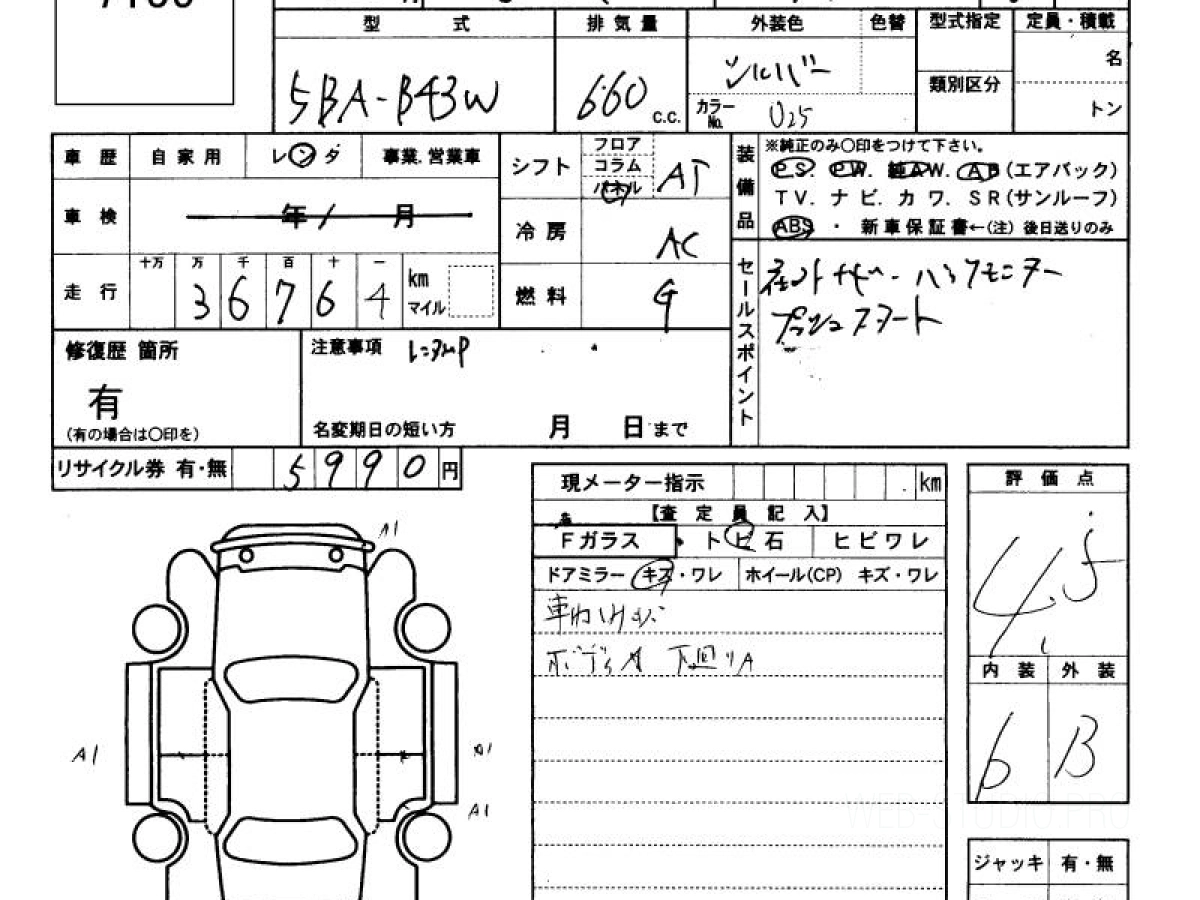 型 式 排気量 外装色 色替 型式指定 定員・積載
5BA-B43W 660 c.c. シルバー 名
カラーNo. U25 類別区分 トン
車歴 自家用 レンタ 事業.営業車
シフト フロア コラム パネル AT
装備品 ※純正のみ〇印をつけて下さい。
PS. PW. 純AW. AB(エアバック)
TV. ナビ. カワ. SR(サンルーフ)
ABS ・ 新車保証書←(注) 後日送りのみ
車検 年 / 月
冷房 AC
走行 十万 万 千 百 十 一
3 6 7 6 4 km マイル
燃料 G
セールスポイント
バックモニター
プッシュスタート
修復歴 箇所 注意事項 レンタUP
有
(有の場合は〇印を) 名変期日の短い方 月 日 まで
リサイクル券 有・無 5990 円
現メーター指示 . km
【査 定 員 記 入】
Fガラス ・ トビ石 ヒビワレ
ドアミラー キズ・ワレ ホイール(CP) キズ・ワレ
ボディA 下廻リA
評価点
4.5
内装 外装
b B
ジャッキ 有・無
A1
A1
A1
A1